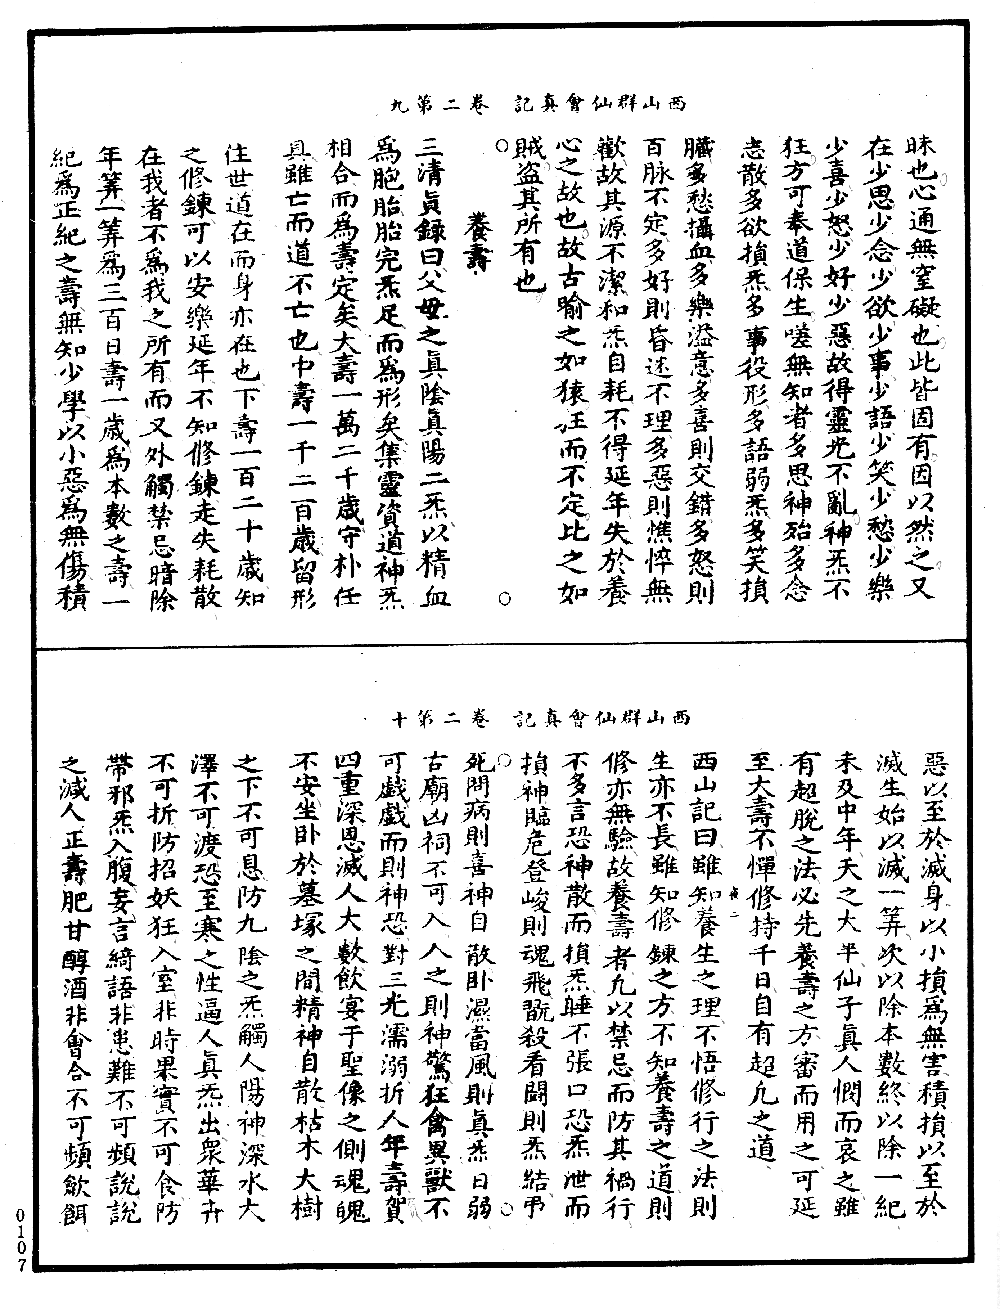 西山群仙會真記　卷二第九
昧也心通無窒礙也此皆固有因以然之又
在少思少念少欲少事少語少笑少愁少樂
少喜少怒少好少惡故得靈光不亂神炁不
狂方可奉道保生嗟無知者多思神殆多念
志散多欲損炁多事役形多語弱炁多笑損
臟多愁攝血多樂溢意多喜則交錯多怒則
百脉不定多好則昏迷不理多惡則憔悴無
歡故其源不潔和炁自耗不得延年失於養
心之故也故古喻之如猿狂而不定比之如
賊盗其所有也
養壽
三清真錄曰父母之真陰真陽二炁以精血
爲胞胎胎完炁足而爲形矣集靈資道神炁
相合而爲壽定矣大壽一萬二千歲守朴任
真雖亡而道不亡也中壽一千二百歲留形
住世道在而身亦在也下壽一百二十歲知
之修鍊可以安樂延年不知修鍊走失耗散
在我者不爲我之所有而又外觸禁忌暗除
年筭一筭爲三百日壽一歲爲本數之壽一
紀爲正紀之壽無知少學以小惡爲無傷積
西山群仙會真記　卷二第十
惡以至於滅身以小損爲無害積損以至於
減生始以減一筭次以除本數終以除一紀
未及中年夭之大半仙子真人憫而哀之雖
有超脫之法必先養壽之方審而用之可延
至大壽不憚修持千日自有超凡之道
西山記曰雖知養生之理不悟修行之法則
生亦不長雖知修鍊之方不知養壽之道則
修亦無驗故養壽者凡以禁忌而防其禍行
不多言恐神散而損炁睡不張口恐炁泄而
損神臨危登峻則魂飛翫殺看鬪則炁結弔
死問病則喜神自散卧濕當風則真炁日弱
古廟凶祠不可入入之則神驚狂禽異獸不
可戲戲而則神恐對三光濡溺折人年壽賀
四重深恩減人大數飲宴于聖像之側魂魄
不安坐卧於墓塚之間精神自散枯木大樹
之下不可息防九陰之炁觸人陽神深水大
澤不可渡恐至寒之性逼人真炁出衆華卉
不可折防招妖狂入室非時果實不可食防
帶邪炁入腹妄言綺語非患難不可頻說說
之減人正壽肥甘醇酒非會合不可頻飲餌
0107